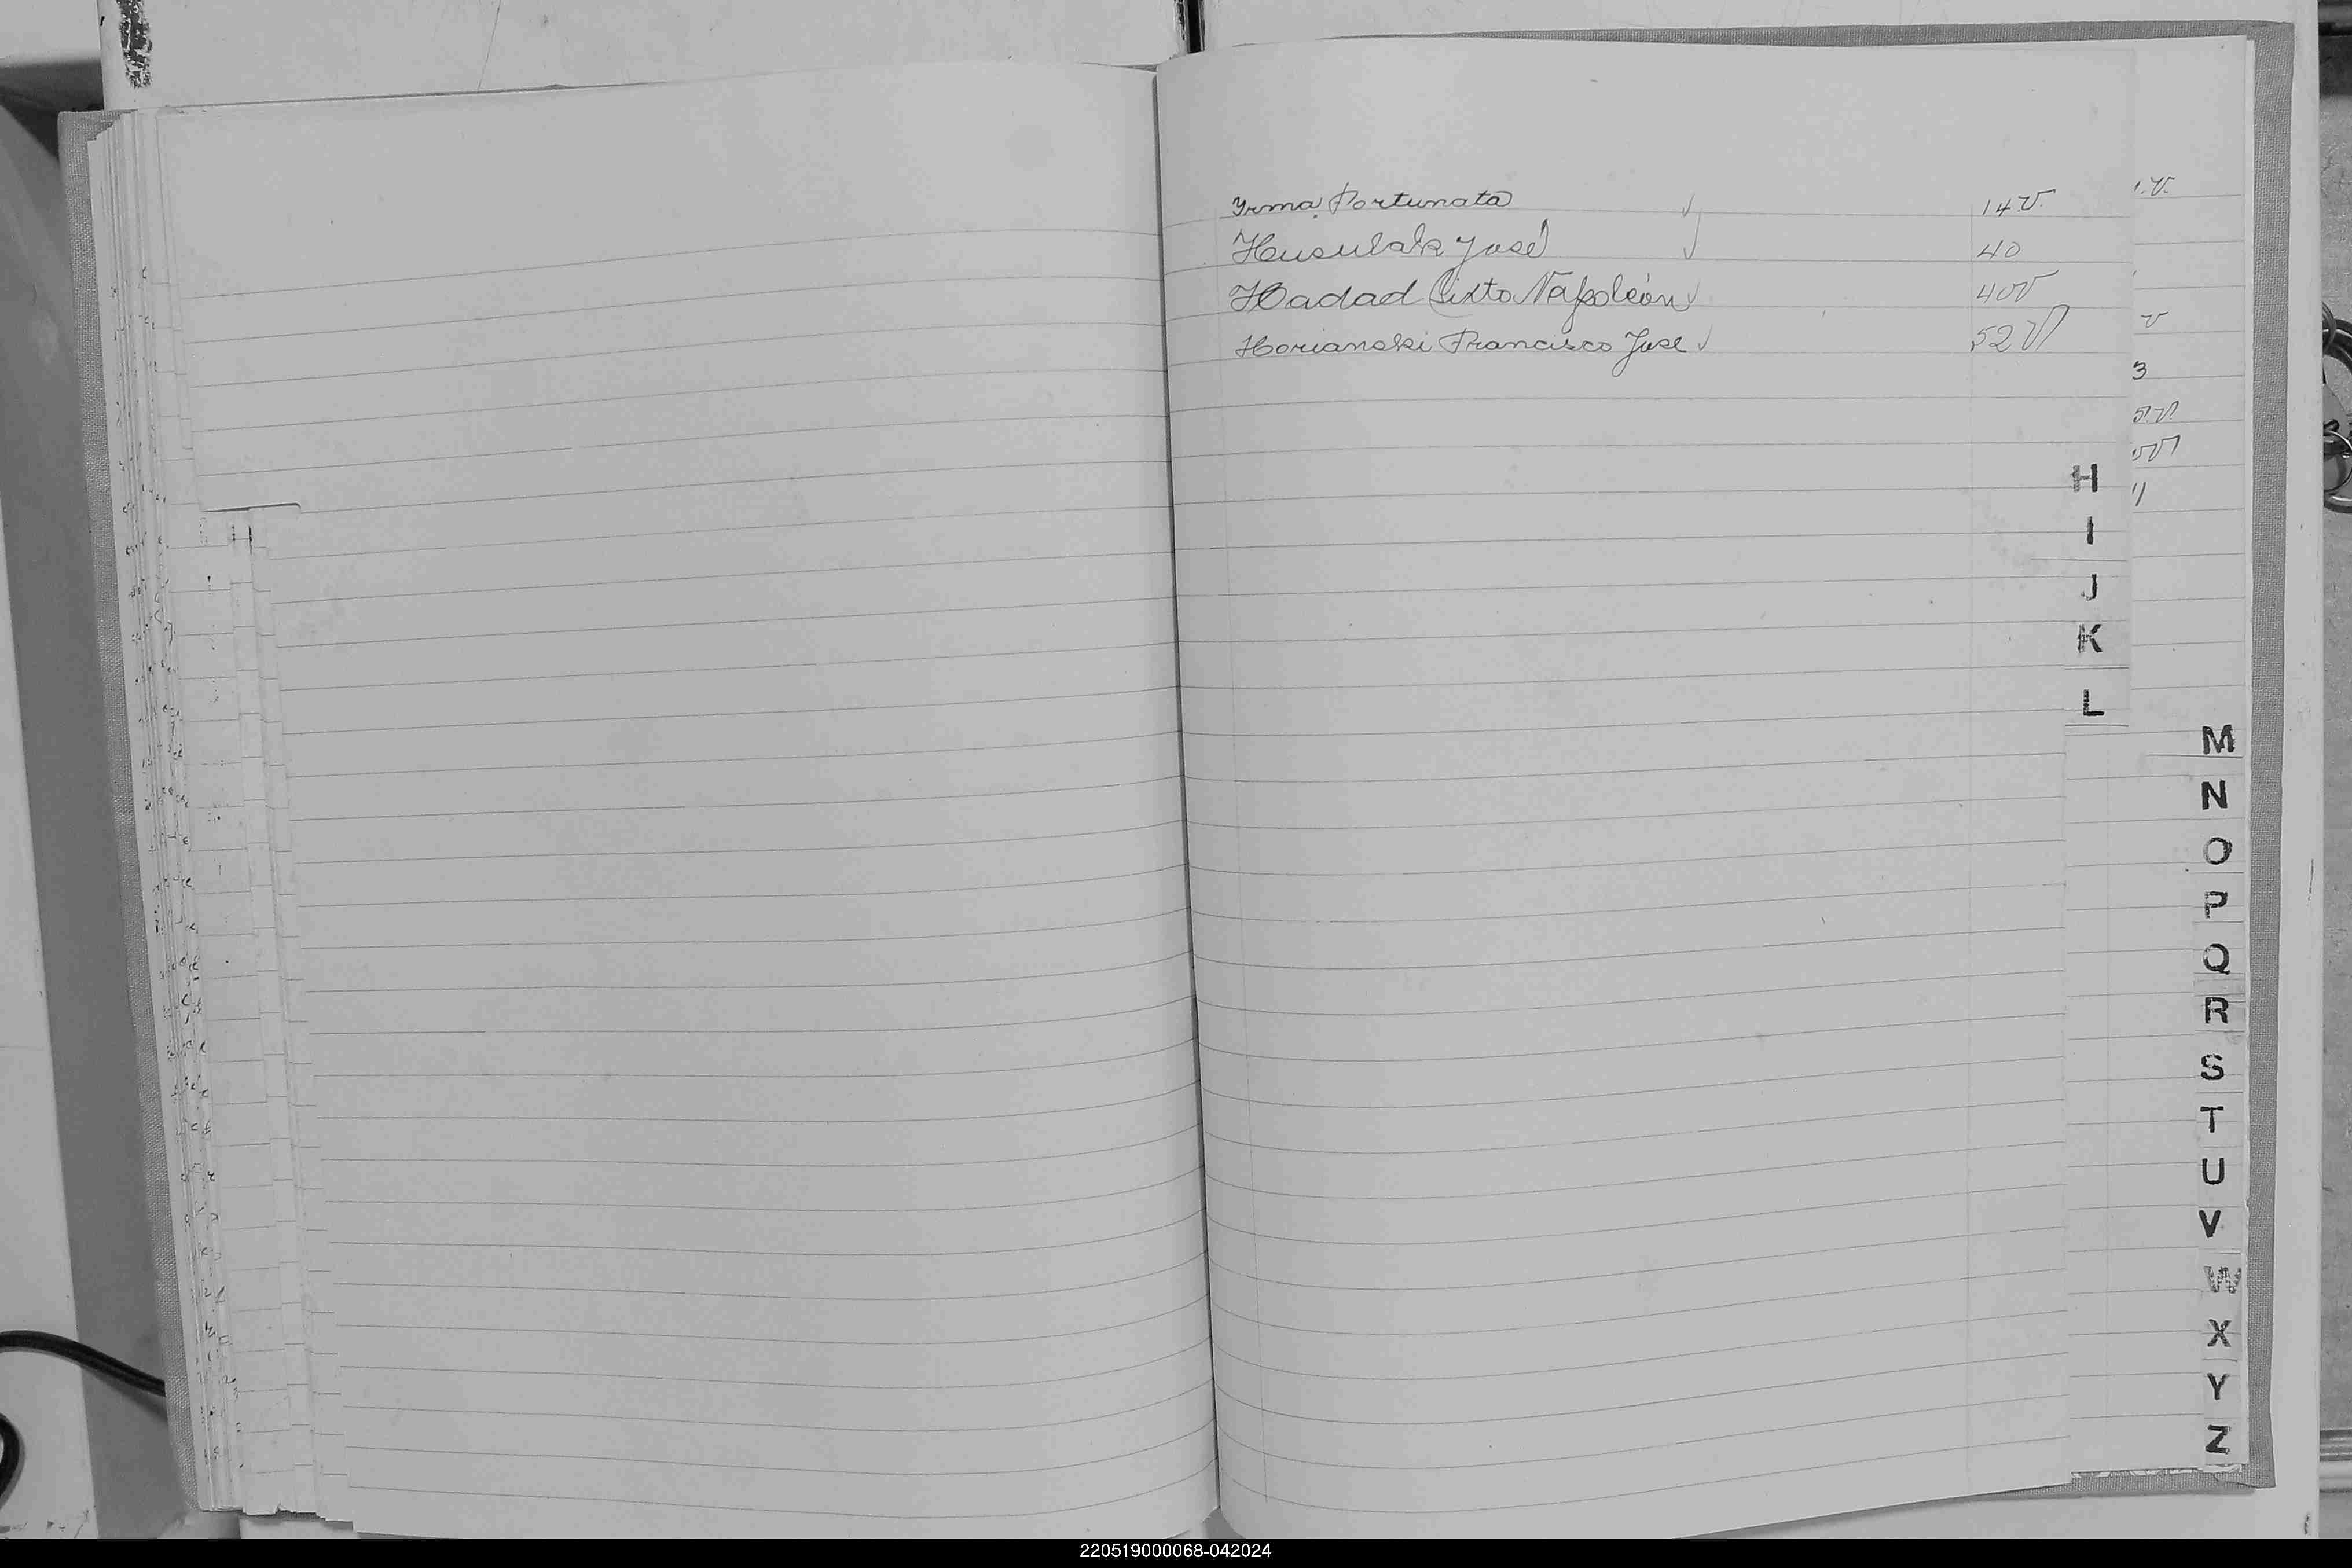 Irma, Fortunata 14 v.
Husulak José 40
Hadad Sixto Napoleón 40v
Horianski Francisco Jose 52 v
H
I
J
K
L
M
N
O
P
Q
R
S
T
U
V
W
X
Y
Z
220519000068-042024